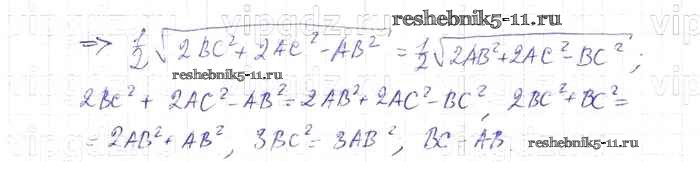 reshebnik5-11.ru
=> 1/2 √(2BC² + 2AC² - AB²) = 1/2 √(2AB² + 2AC² - BC²) ;
reshebnik5-11.ru
2BC² + 2AC² - AB² = 2AB² + 2AC² - BC², 2BC² + BC² =
= 2AB² + AB², 3BC² = 3AB², BC = AB.
reshebnik5-11.ru